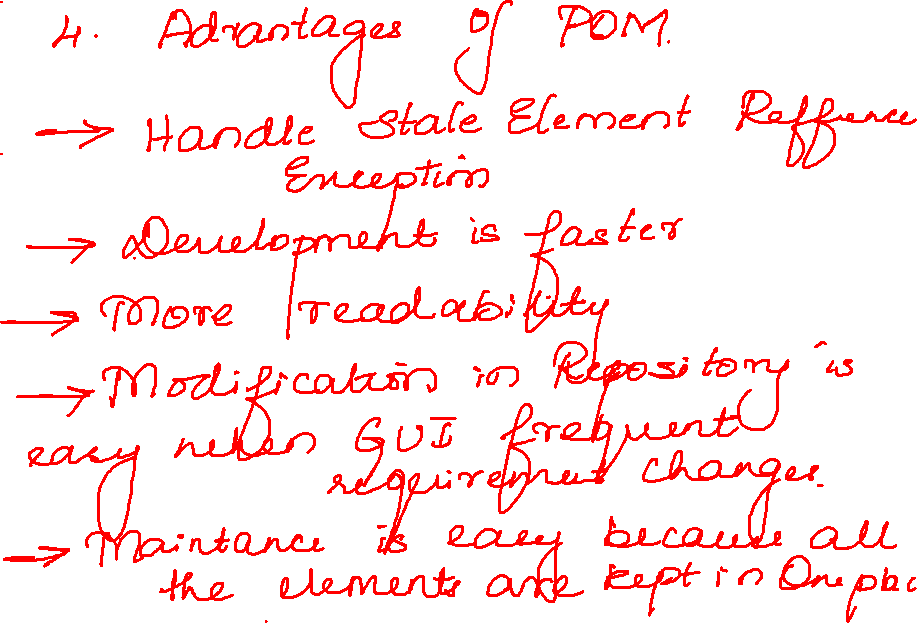 4. Advantages of POM.
→ Handle Stale Element Refference
Exception
→ Development is faster
→ More readability
→ Modification in Repository is
easy when GUI frequent
requirement changes.
→ Maintance is easy because all
the elements are kept in One plac